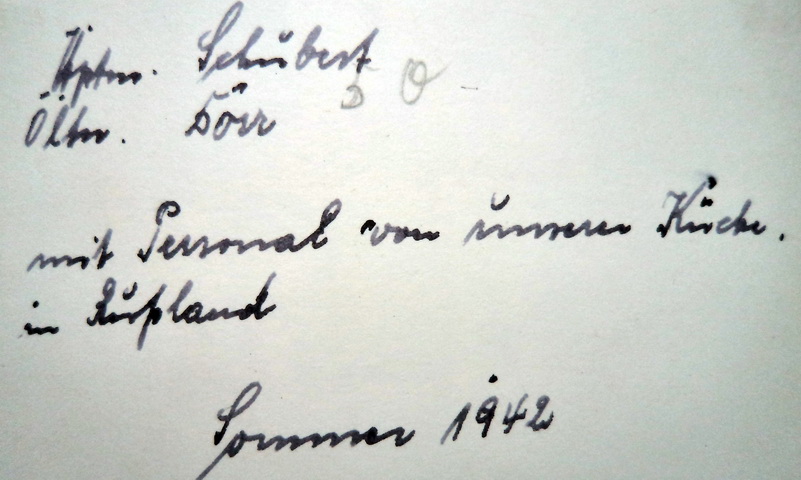 Hptm. Schubert
Oltn. Dörr
mit Personal von unserer Küche.
in Rußland
Sommer 1942